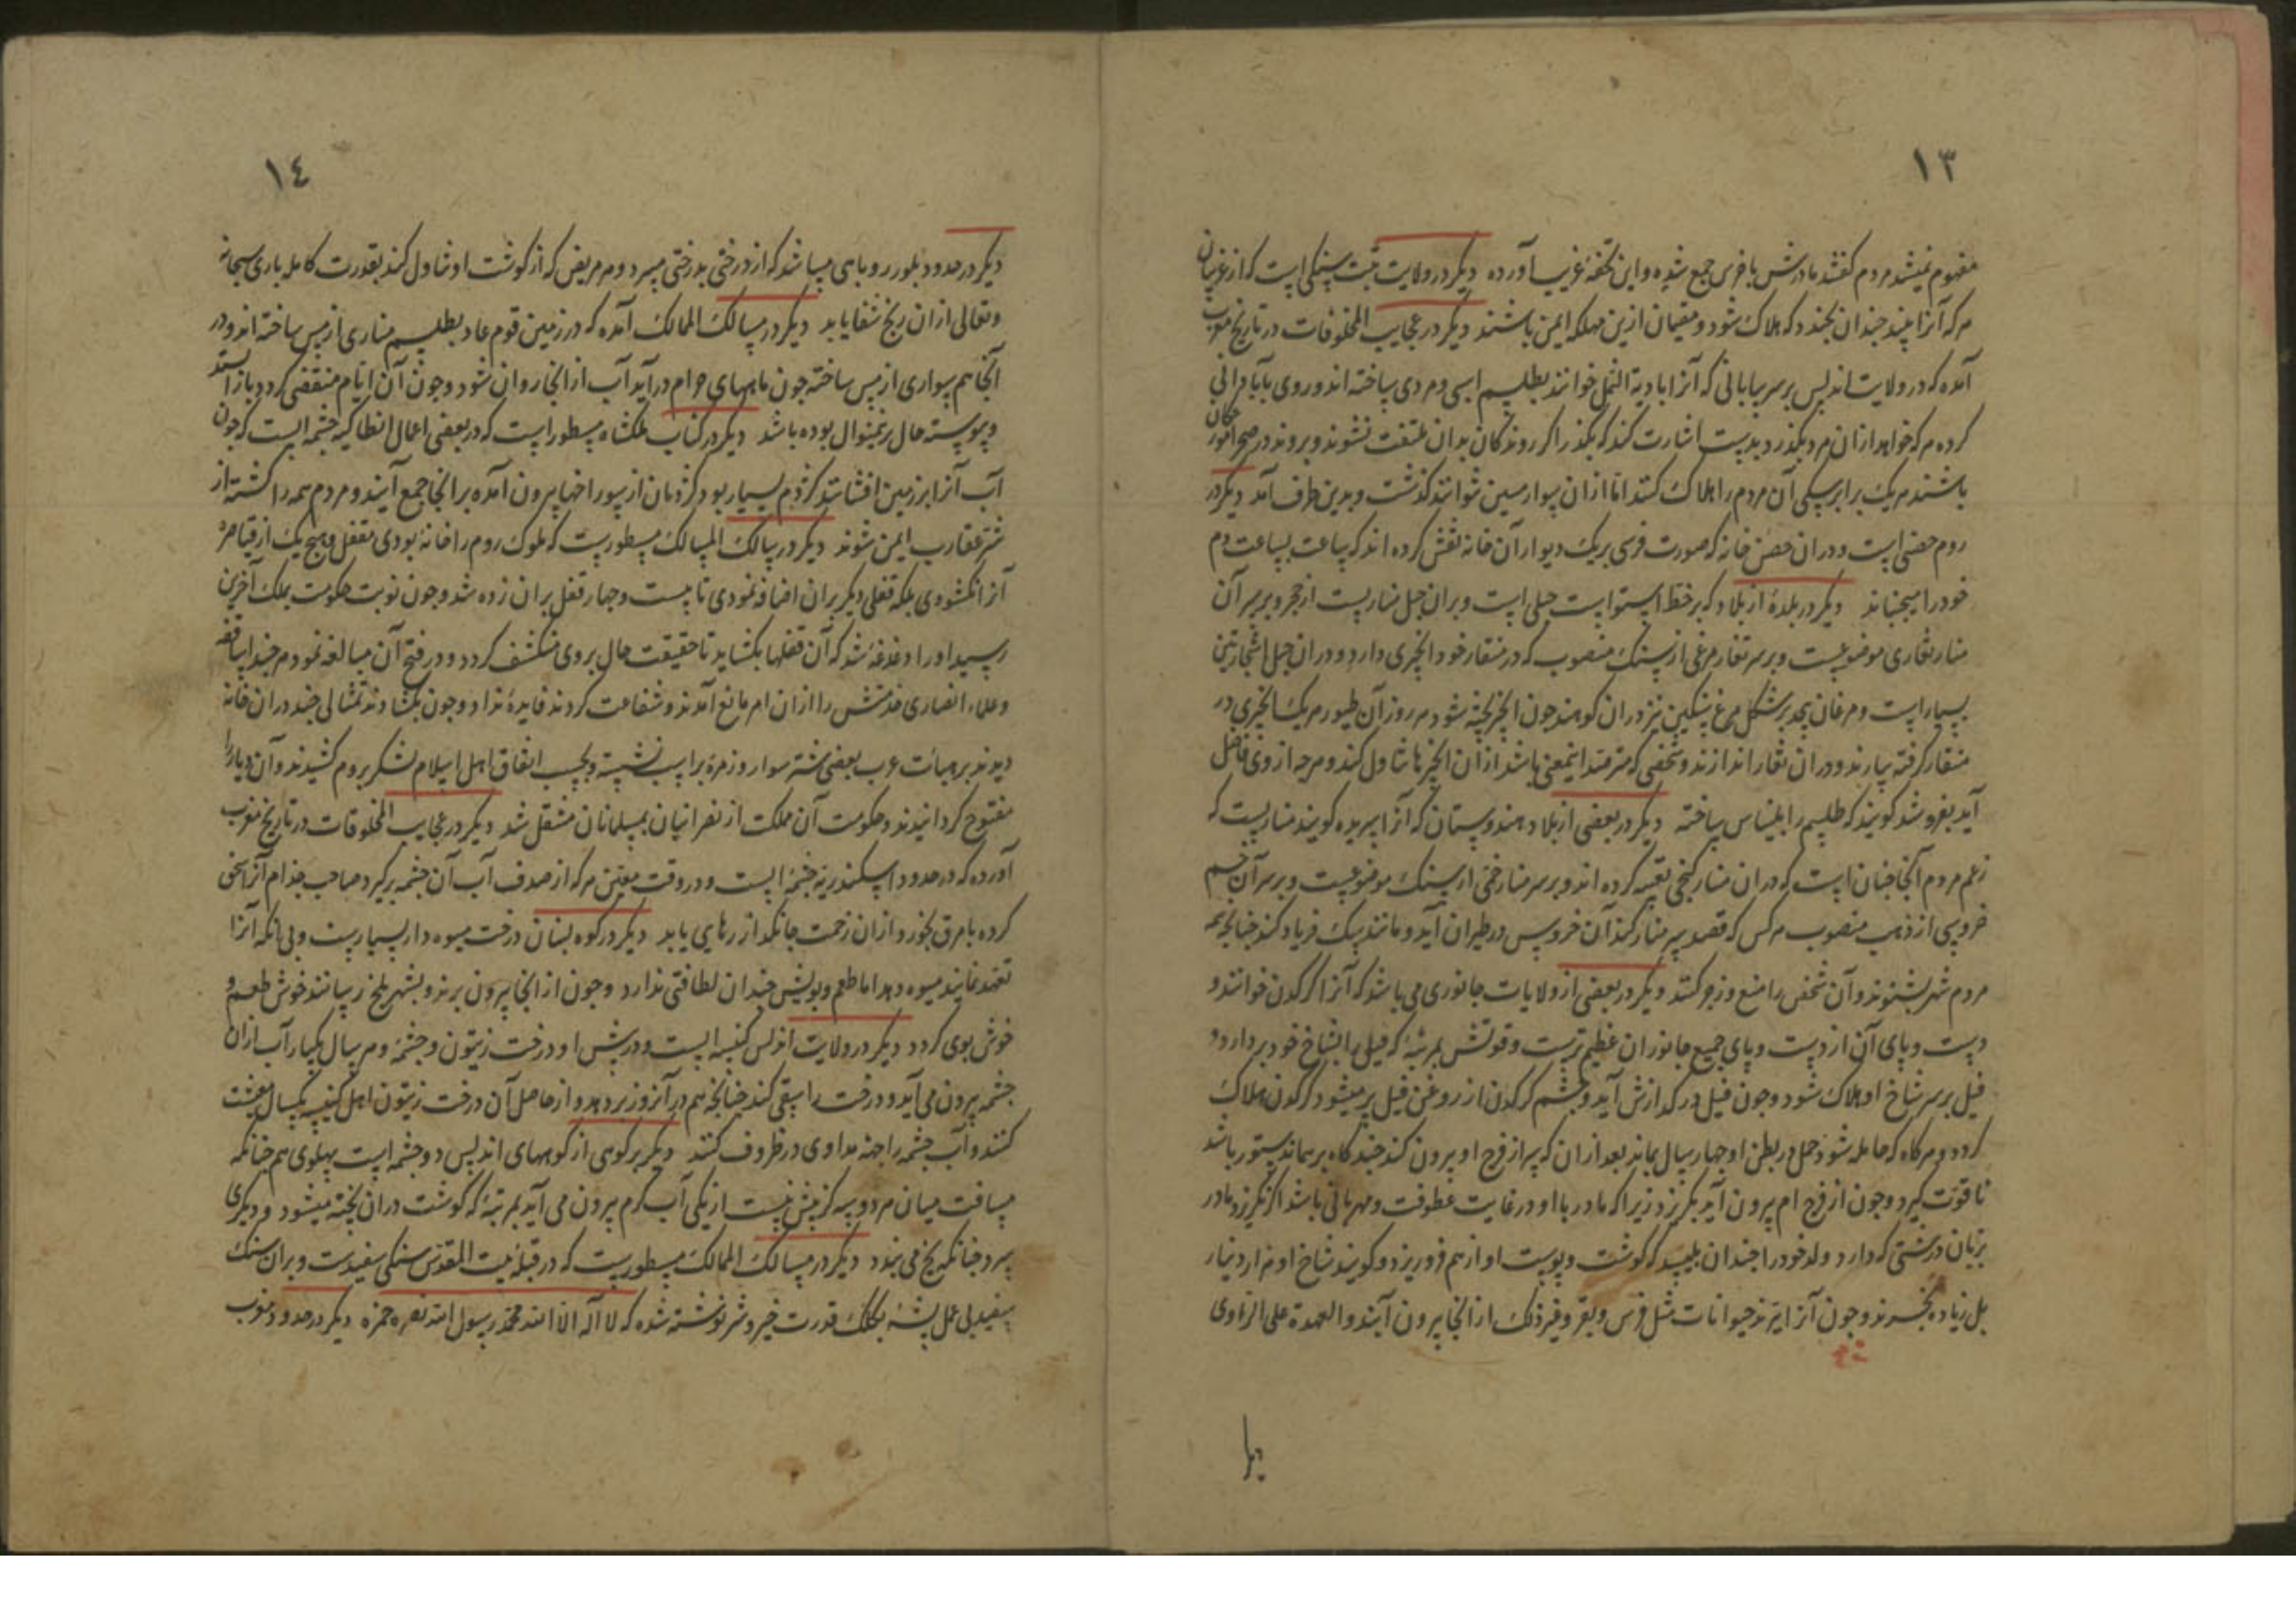 ١٣
مفهوم نمیشد مردم کفتند مادرش با خرس جمع شده و این تحفهٔ غریب آورده دیکر در ولایت تبت سنکی است که از غریبان
هر که آنرا بیند چندان بخندد که هلاک شود و مقیمان ازین مهلکه ایمن باشند دیکر در عجایب المخلوقات در تاریخ مغرب
آمده که در ولایت اندلس بر سر بیابانی که آنرا بادیة النمل خوانند بطلسم اسبی و مردی ساخته اند و روی بیابانی
کرده هر که خواهد ازان مرد بکذرد بدست اشارت کند که مکذر اکر روندکان بدان ملتفت نشوند و بروند در صحرا مورچکان
باشند هر یک برابر سکی آن مردم را هلاک کنند اما ازان سوار مسین نتوانند کذشت و بدین طرف آمد دیکر در
روم حصنی است و دران حصن خانه که صورت فرسی بر یک دیوار آن خانه نقش کرده اند که ساعت بساعت دم
خود را میجنباند دیکر در بلدهٔ از بلاد که بر خط استواست جبلی است و بران جبل مناریست از حجر و بر سر آن
منار تغاری موضوعیست و بر سر تغار مرغی از سنک منصوب که در منقار خود انجیری دارد و دران جبل اشجار تین
بسیار است و مرغان بیحد بر شکل مرغ سنکین نیز دران کوهند چون انجیر پخته شود هر روز آن طیور هر یک انجیری در
منقار کرفته بیارند و دران تغار اندازند و شخصی که مترصد اینمعنی باشد ازان انجیرها تناول کند و هر چه از وی فاضل
آید بفروشد کویند که طلسم را بلیناس ساخته دیکر در بعضی از بلاد هندوستان که آنرا سریره کویند مناریست که
زعم مردم آنجا چنان است که دران منار کنجی تعبیه کرده اند و بر سر منار تختی از سنک موضوعیست و بر سر آن
خروسی از ذهب منصوب هر کس که قصد سر منار کند آن خروس در طیران آید و مانند سک فریاد کند چنانچه همه
مردم شهر بشنوند و آن شخص را منع و زجر کنند دیکر در بعضی از ولایات جانوری می باشد که آنرا کرکدن خوانند و
دست و پای آن از دست و پای جمیع جانوران عظیم ترست و قوتش بمرتبهٔ که فیل را بشاخ خود بردارد و
فیل بر سر شاخ او هلاک شود و چون فیل در کدازش آید و چشم کرکدن از روغن فیل پر میشود کرکدن هلاک
کردد و هر کاه که حامله شود حمل در بطن او چهار سال بماند بعد ازان که سر از فرج او بیرون کند چند کاه بر همان دستور باشد
تا قوت کیرد و چون از فرج ام بیرون آید بکریزد زیرا که مادر با او در غایت عطوفت و مهربانی باشد اکر نکریزد مادر
بزبان درشتی که دارد ولد خود را چندان بلیسد که کوشت و پوست او از هم فرو ریزد و کویند شاخ او هزار دینار
بل زیاده بخرند و چون آنرا ببرند حیوانات مثل فرس و بقر و غیر ذلک از آنجا بیرون آیند و العهدة علی الراوی
١٤
دیکر در حدود بلور روباهی میباشد که از درختی بدرختی میپرد و هر مریض که از کوشت او تناول کند بقدرت کامله باری سبحانه
و تعالی ازان رنج شفا یابد دیکر در مسالک الممالک آمده که در زمین قوم عاد بطلسم مناری از مس ساخته اند و در
آنجا هم سواری از مس ساخته چون ماههای حرام درآید آب از آنجا روان شود و چون آن ایام منقضی کردد باز استد
و پیوسته حال برینمنوال بوده باشد دیکر در کتاب ملکشاه مسطور است که در بعضی اعمال انطاکیه چشمه ایست که چون
آب آنرا بر زمین افشانند کژدم بسیار بود کژدمان از سوراخها بیرون آمده بر آنجا جمع آیند و مردم همه را کشته از
شر عقارب ایمن شوند دیکر در مسالک المسالک مسطوریست که ملوک روم را خانه بودی مقفل و هیچ یک از قیاصره
آنرا نکشودی بلکه قفلی دیکر بران اضافه نمودی تا بیست و چهار قفل بران زده شد و چون نوبت حکومت بملک آخرین
رسید او را دغدغه شد که آن قفلها بکشاید تا حقیقت حال بر وی منکشف کردد و در فتح آن مبالغه نمود هر چند اساقفه
و علماء انصاری خدمتش را ازان امر مانع آمدند و شفاعت کردند فایده نداد و چون بکشادند تمثالی چند دران خانه
دیدند بر هیات عرب بعضی شتر سوار و زمرهٔ بر اسب نشسته و بحسب اتفاق اهل اسلام لشکر بروم کشیدند و آن دیار را
مفتوح کردانیدند و حکومت آن مملکت از نصرانیان بمسلمانان منتقل شد دیکر در عجایب المخلوقات در تاریخ مغرب
آورده که در حدود اسکندریه چشمهٔ ایست و در وقت معین هر که از صدف آب آن چشمه برکیرد صاحب جذام آنرا سحق
کرده با مرق بخورد ازان زحمت جانکداز رهایی یابد دیکر در کوه لبنان درخت میوه دار بسیاریست و بی آنکه آنرا
تعهد نمایند میوه دهد اما طعم و بویش چندان لطافتی ندارد و چون از آنجا بیرون برند و بشهر بلخ رسانند خوش طعم و
خوش بوی کردد دیکر در ولایت اندلس کنیسه ایست و در پیش او درخت زیتون و چشمه و هر سال یکبار آب ازان
چشمه بیرون می آید و درخت را سقی کند چنانچه هم در آنروز بر دهد و از حاصل آن درخت زیتون اهل کنیسه یکسال معیشت
کنند و آب چشمه را جهة مداوی در ظروف کنند دیکر بر کوهی از کوههای اندلس دو چشمه است پهلوی هم چنانکه
مسافت میان هر دو سه کز بیش نیست از یکی آب کرم بیرون می آید بمرتبهٔ که کوشت دران پخته میشود و دیکری
سرد چنانکه یخ می بندد دیکر در مسالک الممالک مسطوریست که در قبلهٔ بیت المقدس سنکی سفیدست و بران سنک
سفید بی عمل بشر بکلک قدرت خیر و شر نوشته شده که لا اله الا الله محمد رسول الله نصره حمزه دیکر در حدود مغرب